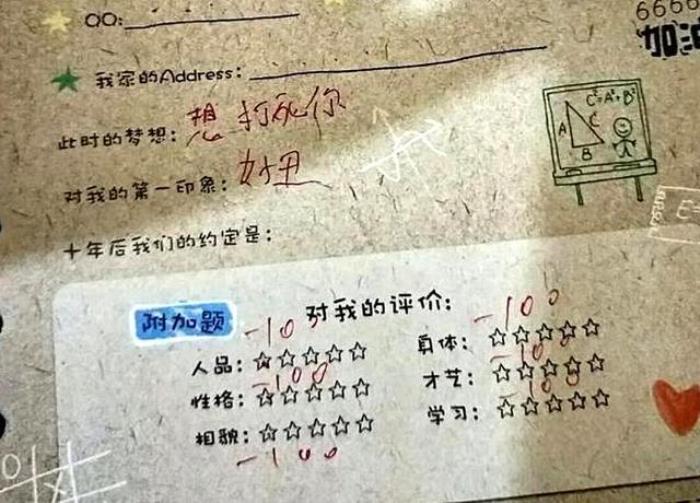 QQ:
6666
加油
我家的Address:
此时的梦想: 想打死你
C²=A²+B²
A C
B
对我的第一印象: 好丑
十年后我们的约定是:
附加题 对我的评价:
-100 -100
人品: ☆☆☆☆☆ 身体: ☆☆☆☆☆
-100 -100
性格: ☆☆☆☆☆ 才艺: ☆☆☆☆☆
-100
相貌: ☆☆☆☆☆ 学习: ☆☆☆☆☆
-100